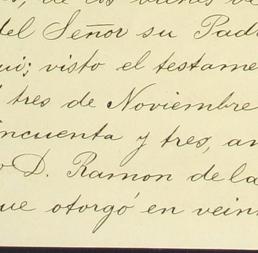 de los bienes de
del Señor su Padr
qui; visto el testame
tres de Noviembre
incuenta y tres, an
o D. Ramon de la
ue otorgó en vein